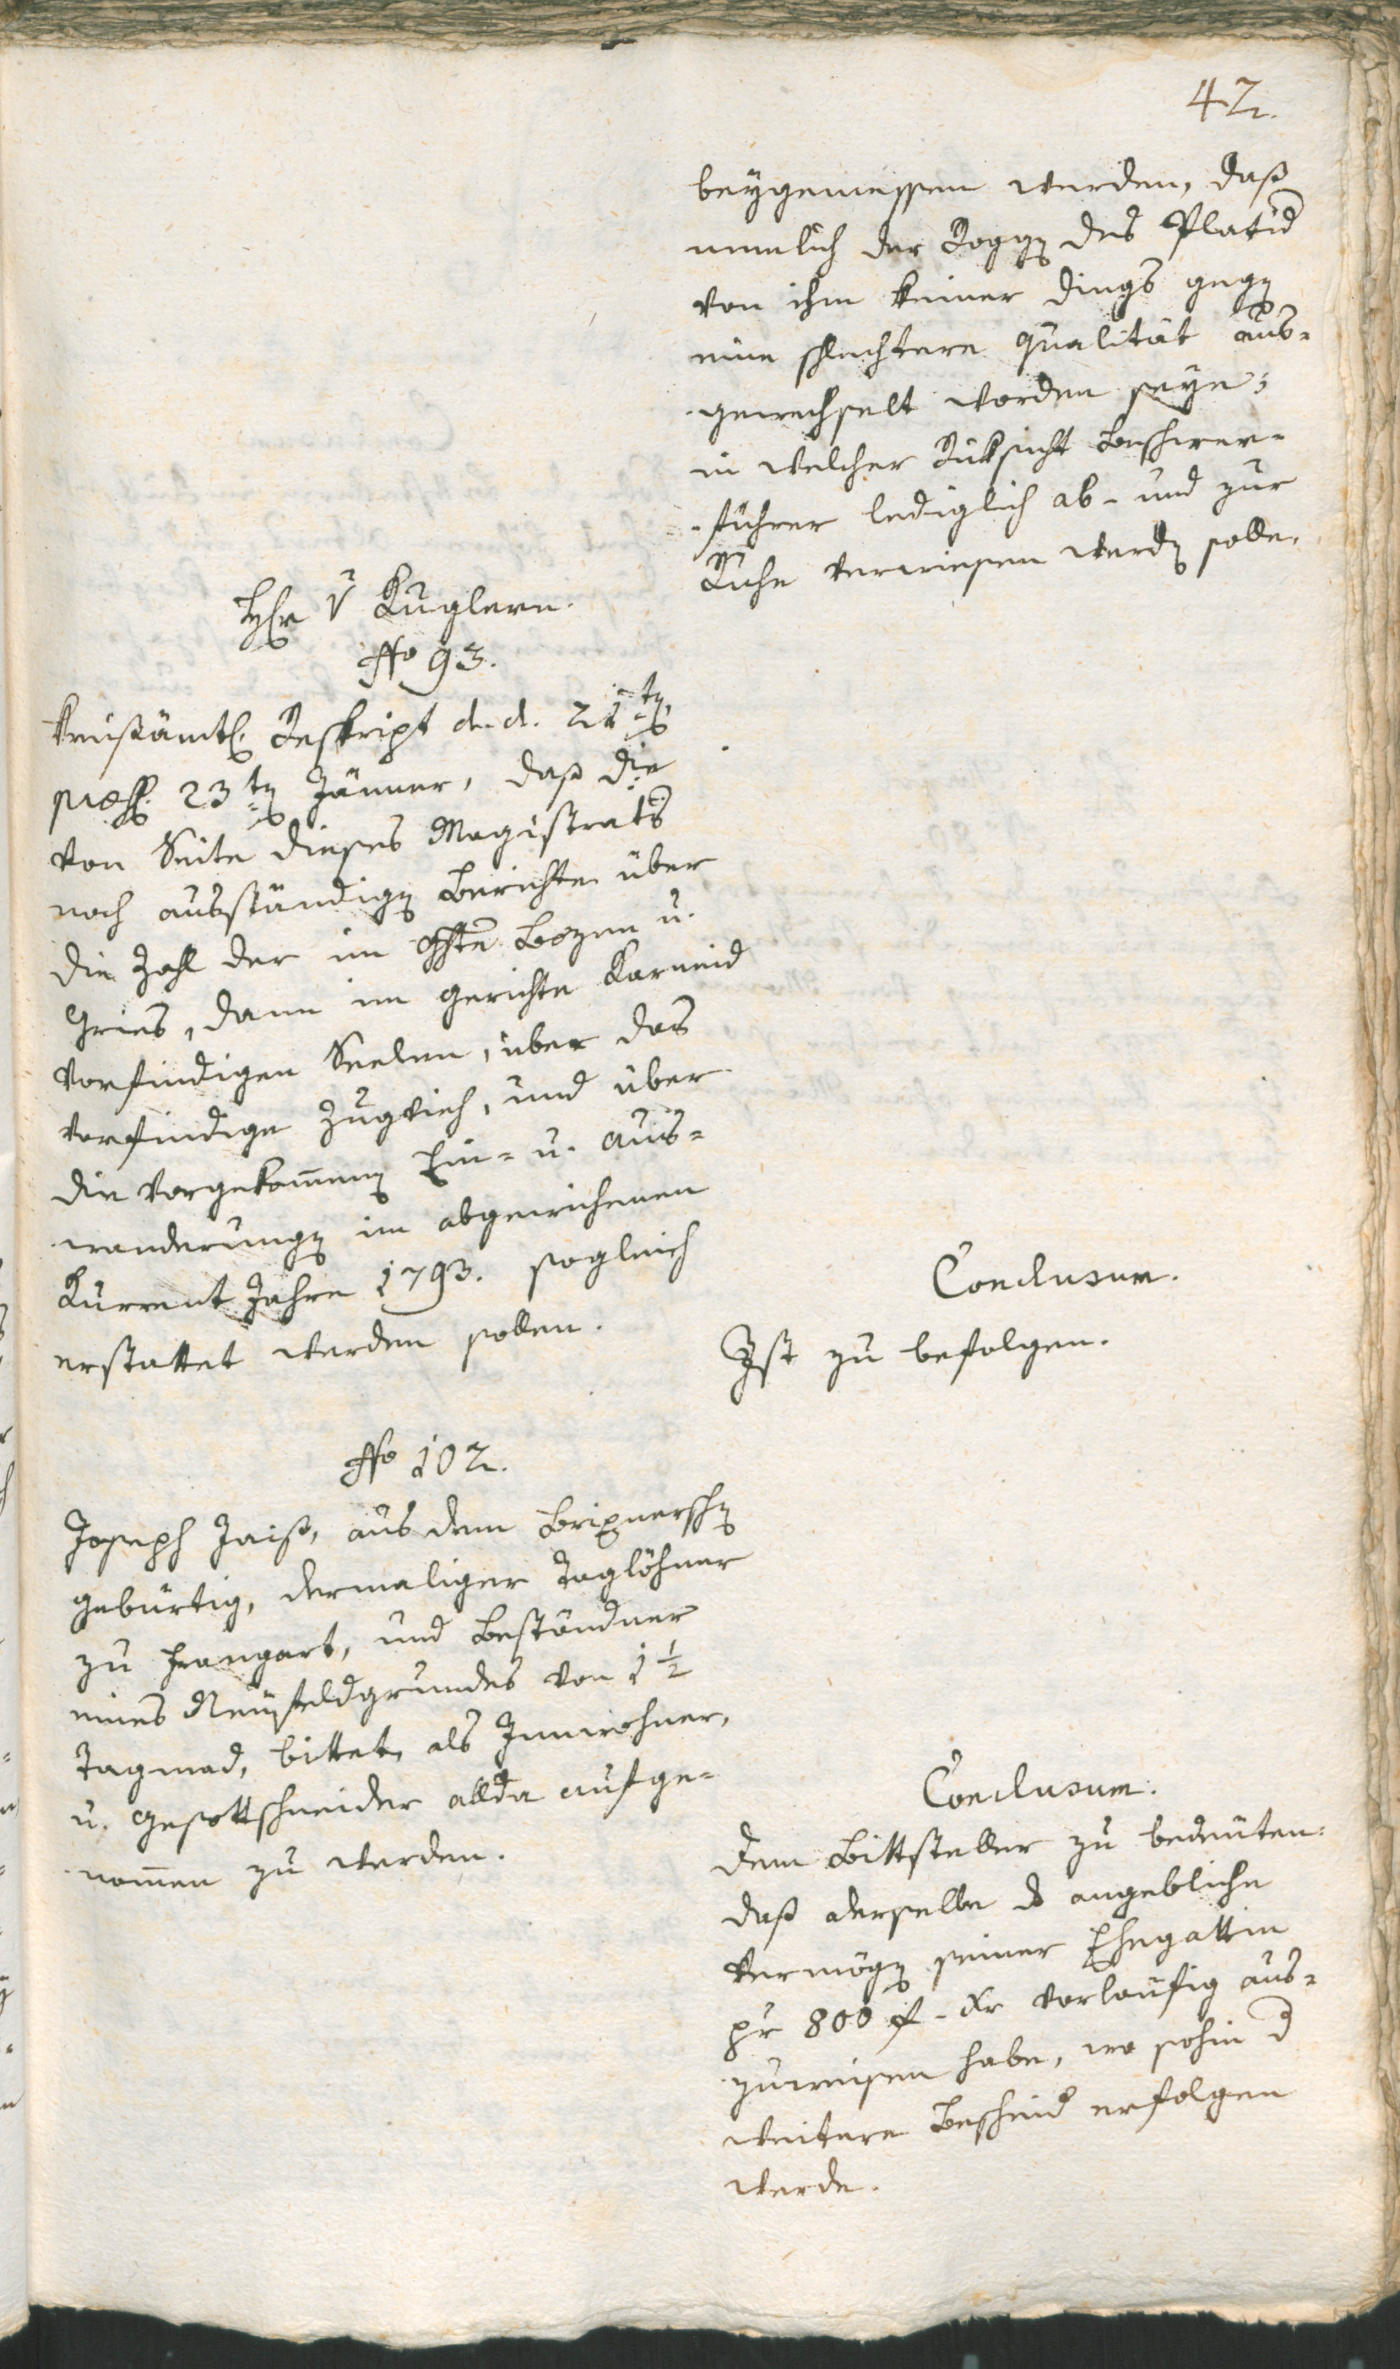 42.
beygemessen werden, daß
nemlich der Roggen des Platid
von ihm keiner dings gegen
eine schlechtere Qualität aus-
gewechselt worden seye;
in welcher Rüksicht Beschwer-
führer lediglich ab- und zur
Ruhe verwiesen werden solle.
Hr v Kuglern.
No 93.
Kreisämtl. Reskript d. d. 21ten
praes. 23ten Jänner, daß die
von Seite dieses Magistrats
noch ausständigen Berichte über
die Zahl der im Ghte Bozen u.
Gries, dann im Gerichte Karneid
vorfindigen Seelen, über das
vorfindige Zugvieh, und über
die vorgekom̅enen Ein- u. Aus-
wanderungen im abgewichenen
Kurrent Jahre 1793. sogleich
erstattet werden sollen.
Conclusum.
Ist zu befolgen.
No 102.
Joseph Zaiß, aus dem Brixnerschen
gebürtig, dermaliger Taglöhner
zu Frangart, und Beständner
eines Neufeldgrundes von 1 1/2
Tagmad, bittet, als Innwohner,
u. Gesottschneider allda aufge-
nom̅en zu werden.
Conclusum.
Dem Bittsteller zu bedeuten:
daß derselbe ds angebliche
Vermögen seiner Ehegattin
pr 800 f - xr vorläufig aus-
zuweisen habe, wo sohin d
weitere Bescheid erfolgen
werde.